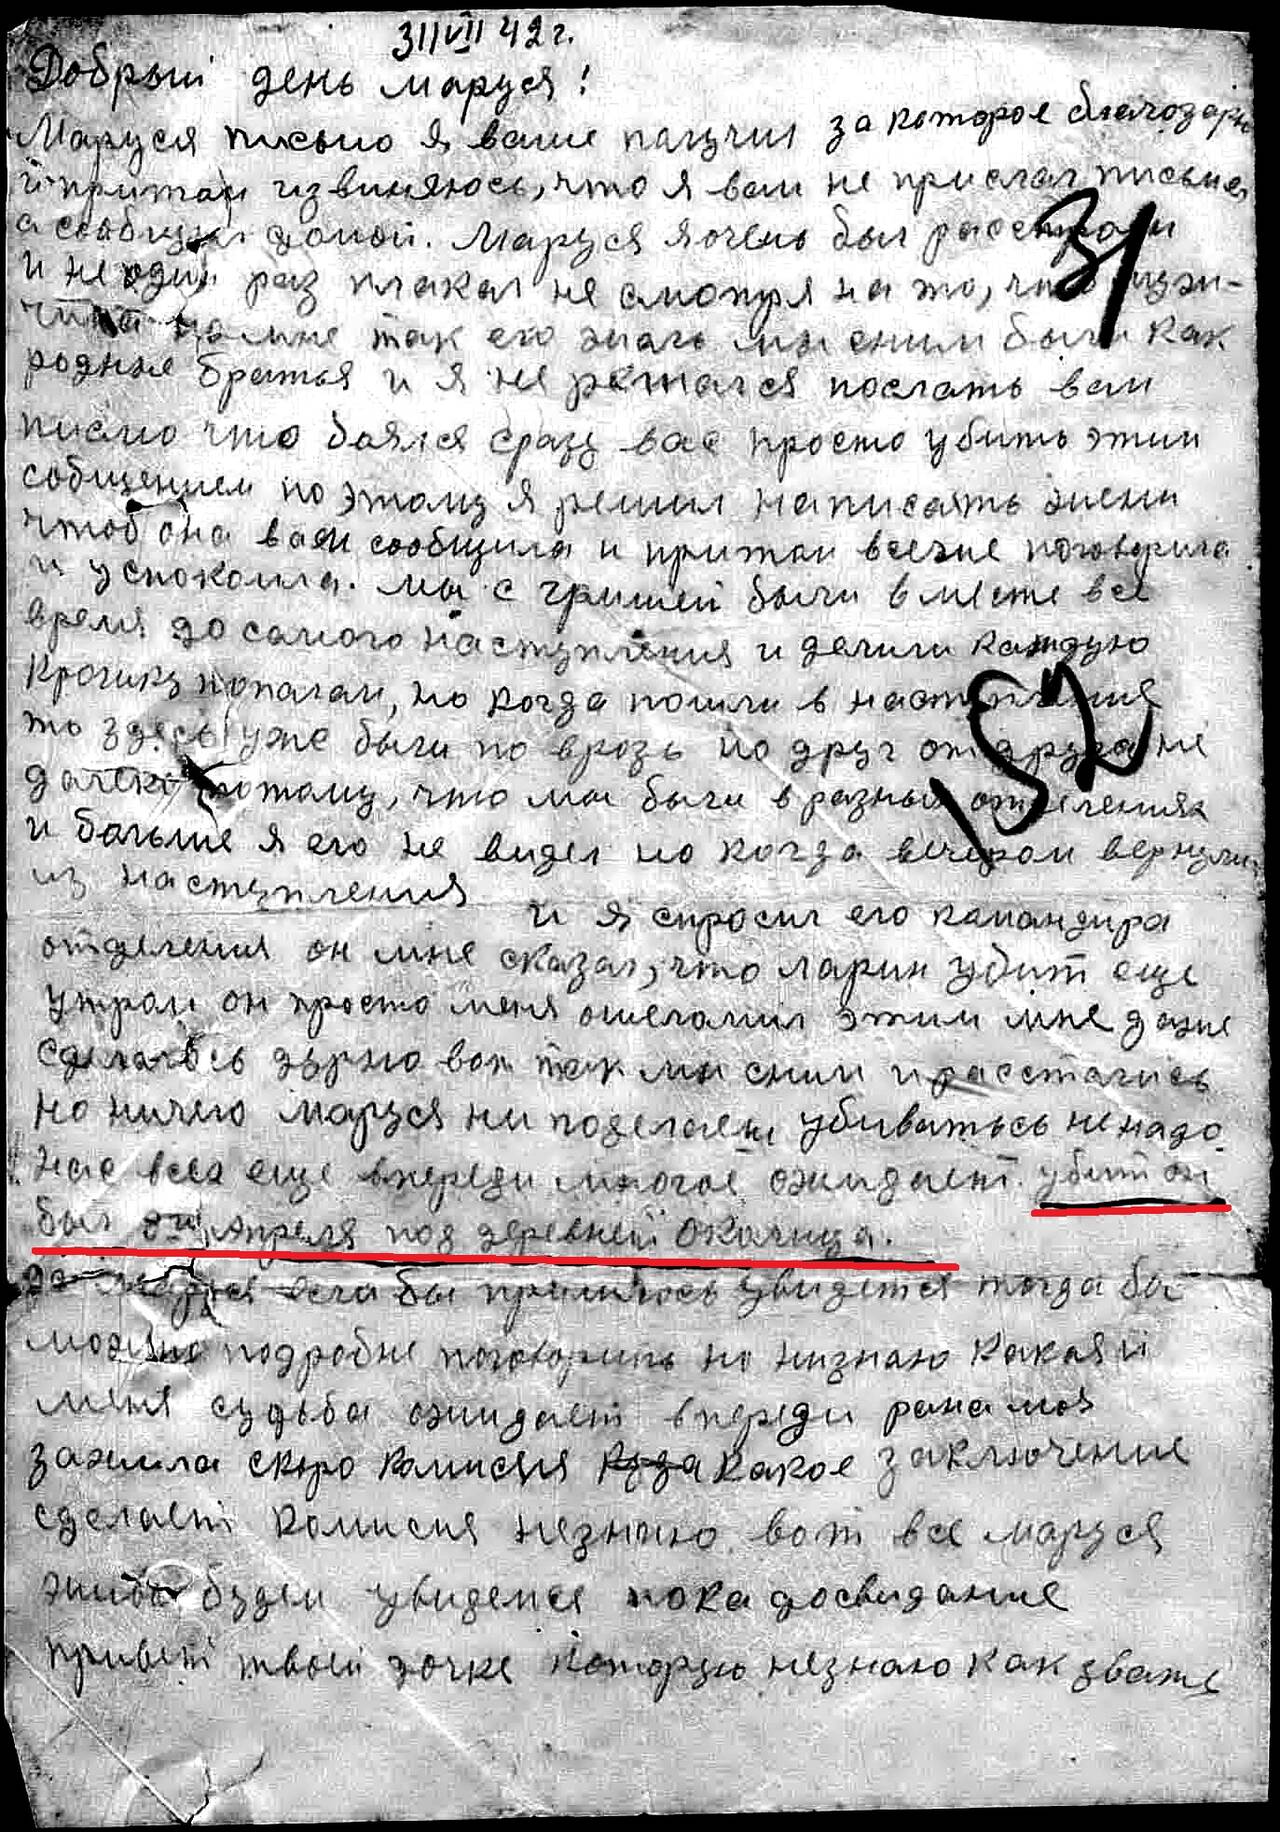 31/VII 42 г.
Добрый день Маруся!
Маруся письмо я ваше палучил за которое благодарю
и притом извиняюсь, что я вам не прислал письма
а сообщил домой. Маруся я очень был расстроен
и не один раз плакал не смотря на то, что
так его жаль мы сним были как
родные братья и я не решался послать вам
писмо что боялся сразу вас просто убить этим
собщением по этому я решил написать жене
чтоб она вам сообщила и притом все же поговорила
и успокоила. мы с Гришей были вместе все
время до самого наступления и делили каждую
Крошку пополам, но когда пошли в наступление
то здесь уже были по врозь но друг от друга не
далеко потому, что мы были в разных отделениях
и больше я его не видел но когда вечером вернулись
из наступления и я спросил его командира
отделения он мне сказал, что Ларин убит еще
утром он просто меня ошеломил этим мне даже
сделалось дурно вот так мы сним и расстались
Но ничего Маруся ни поделаеш убиваться ненадо
нас всех еще впереди многое ожидает. убит он
был Апреля под деревней Околица.
Маруся если бы пришлось увидется тогда бы
можно подробне поговорить но низнаю какая и
меня судьба ожидает впереди рана моя
зажила скоро комисия куда какое заключение
сделает комисия незнаю. вот все Маруся
живы будем увидемся пока досвидание
привет твоей дочке которую незнаю как звать
31
152